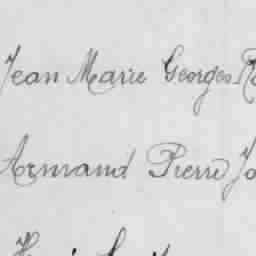 Jean Marie Georges
Armand Pierre